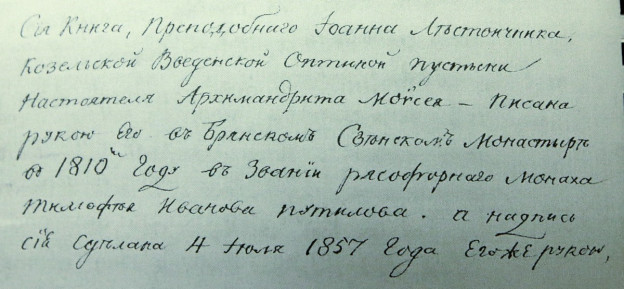 Сія Книга, Преподобнаго Іоанна Лѣствичника,
Козельской Введенской Оптиной пустыни
Настоятеля Архимандрита Моѵсея – писана
рукою Его въ Брянскомъ Свѣнскомъ Монастырѣ
въ 1810мъ Году въ Званіи рясофорнаго Монаха
Тимофѣя Иванова Путилова. а надпись
сія Сдѣлана 4 Іюля 1857 Года Егоже рукою,